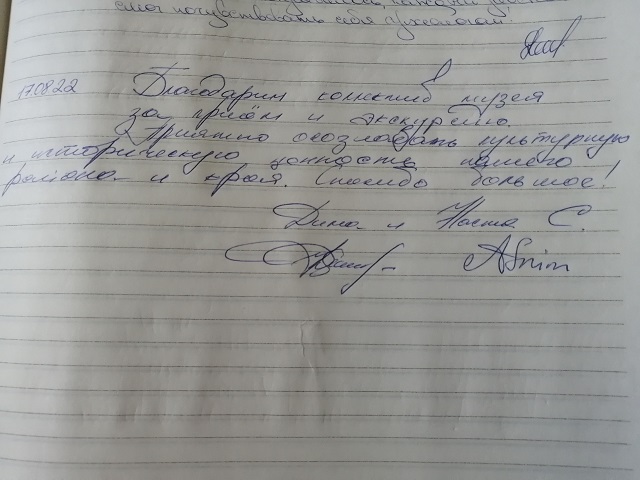 смог почувствовать себя археологом!
17.08.22 Благодарим коллектив музея
за приём и экскурсию.
Приятно осознавать культурную
и историческую ценность нашего
района и края. Спасибо большое!
Дима и Настя С.